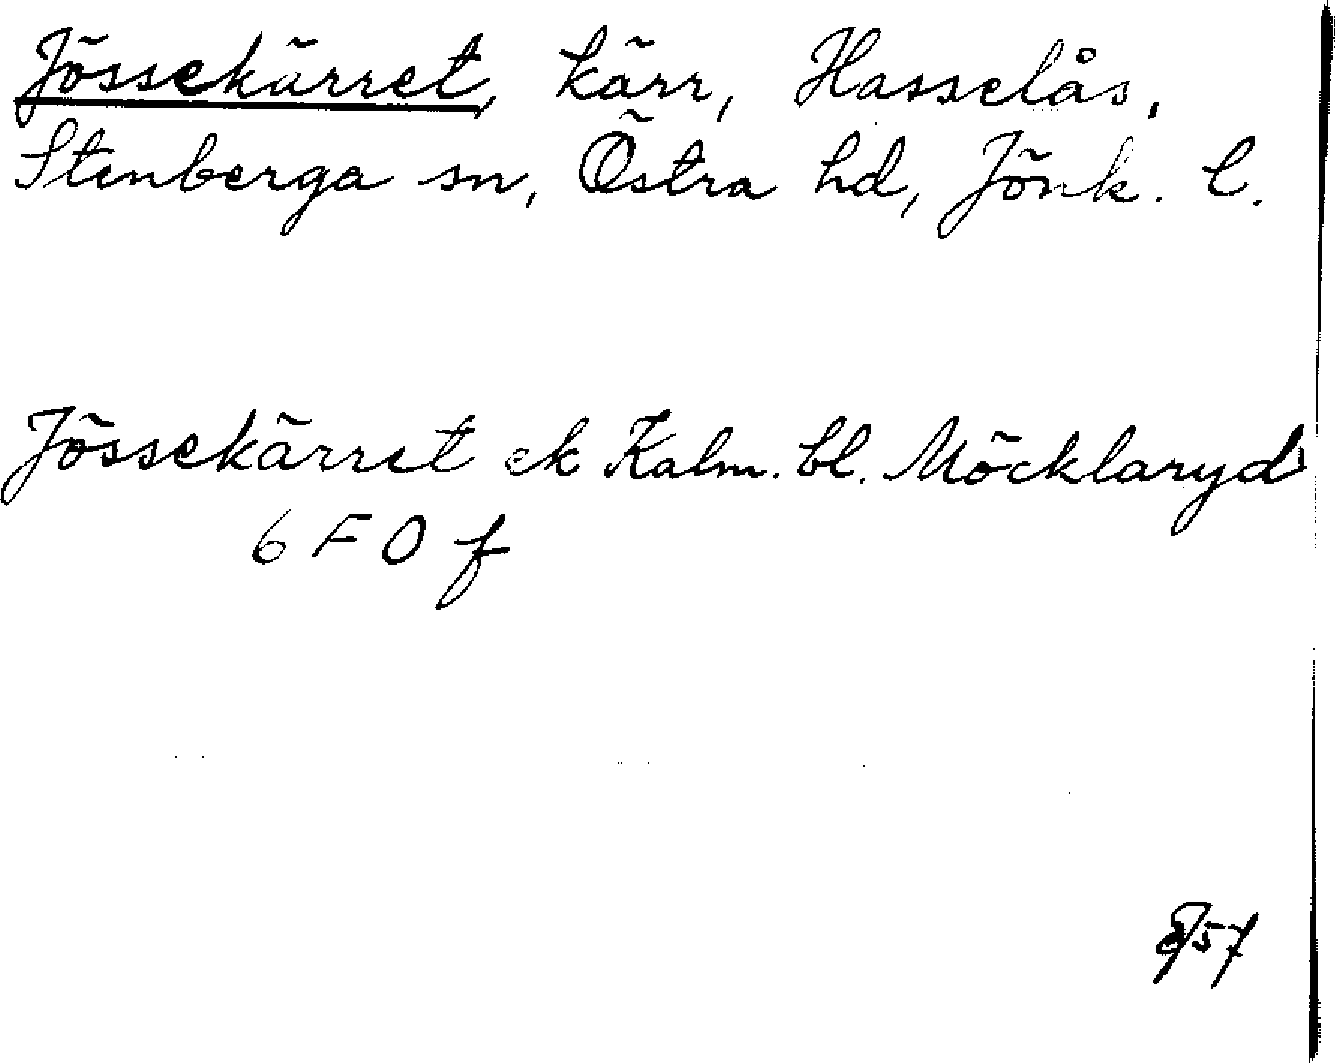 Jössekärret, kärr, Hasselås,
Stenberga sn, Östra hd, Jönk. l.
Jössekärret ek Kalm. bl. Möcklaryd
6 F 0 f
57